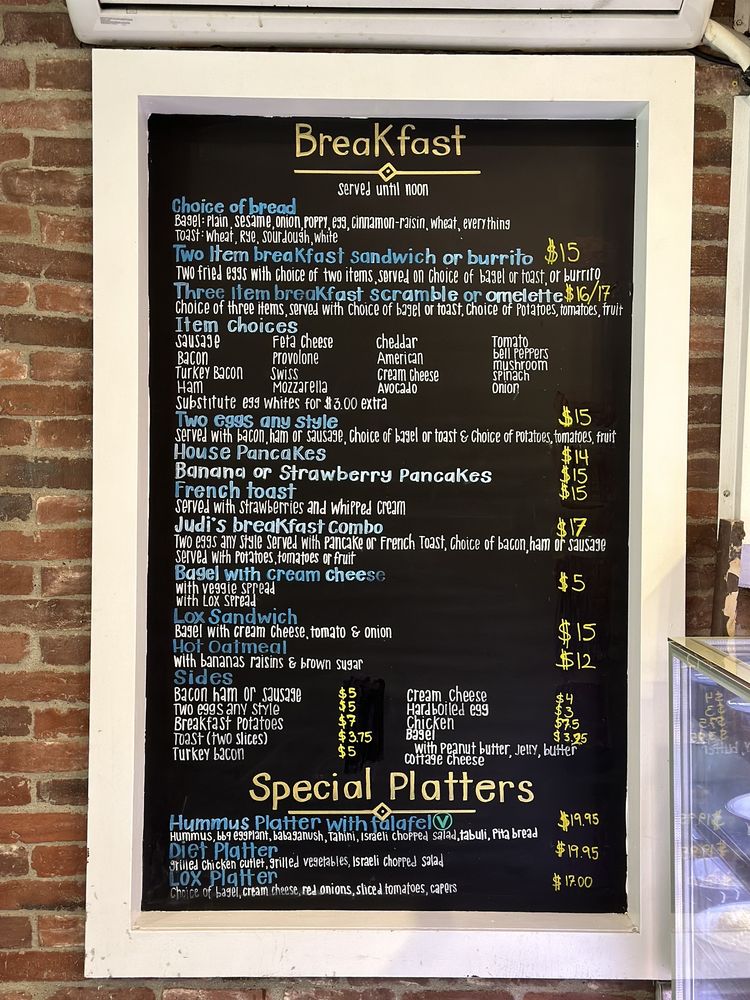 Breakfast
served until noon
Choice of bread
Bagel: Plain, sesame, onion, poppy, egg, cinnamon-raisin, wheat, everything
Toast: wheat, Rye, Sourdough, white
Two Item breakfast sandwich or burrito $15
Two fried eggs with choice of two items, served on choice of bagel or toast, or burrito
Three item breakfast scramble or omelette $16/17
Choice of three items, served with choice of bagel or toast, choice of Potatoes, tomatoes, fruit
Item choices
Sausage Feta Cheese Cheddar Tomato
Bacon Provolone American bell peppers
Turkey Bacon Swiss Cream Cheese mushroom
Ham Mozzarella Avocado spinach
Onion
Substitute egg whites for $3.00 extra
Two eggs any style $15
Served with bacon, ham or sausage, Choice of bagel or toast & Choice of Potatoes, tomatoes, fruit
House Pancakes $14
Banana or Strawberry Pancakes $15
French toast $15
Served with strawberries and whipped cream
Judi's breakfast combo $17
Two eggs any style Served with Pancake or French Toast, Choice of bacon, ham or sausage
Served with Potatoes, tomatoes or fruit
Bagel with cream cheese $5
with veggie spread
with Lox Spread
Lox Sandwich
Bagel with cream cheese, tomato & onion $15
Hot Oatmeal
with bananas raisins & brown sugar $12
Sides
Bacon ham or sausage $5 Cream Cheese $4
Two eggs any style $5 Hardboiled egg $3
Breakfast Potatoes $7 Chicken $7.5
Toast (two slices) $3.75 Bagel
Turkey bacon $5 with Peanut butter, Jelly, butter
Cottage cheese
Special Platters
Hummus Platter with falafel V $19.95
Hummus, bbq eggplant, babaganush, Tahini, Israeli chopped salad, tabuli, Pita bread
Diet Platter $19.95
grilled chicken cutlet, grilled vegetables, Israeli chopped salad
Lox Platter $17.00
Choice of bagel, cream cheese, red onions, sliced tomatoes, capers